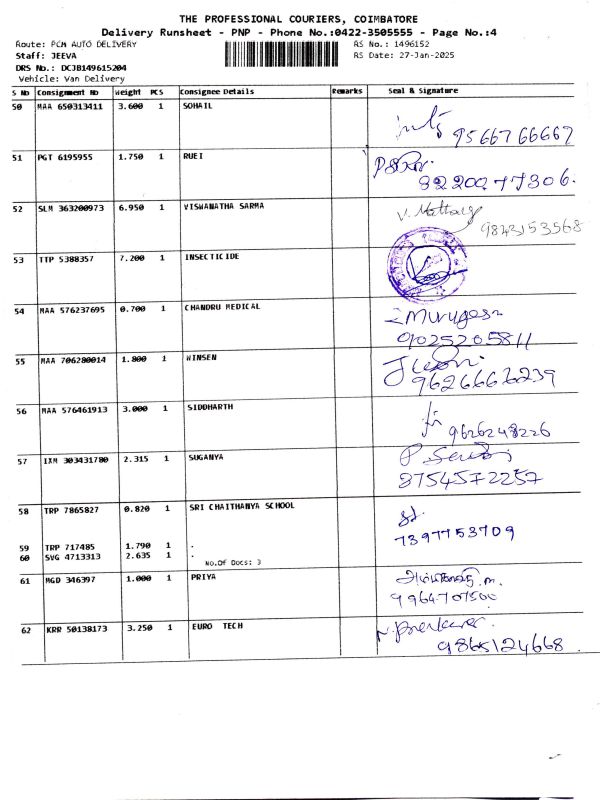 THE PROFESSIONAL COURIERS, COIMBATORE
Delivery Runsheet - PNP - Phone No.:0422-3505555 - Page No.:4
Route: PCM AUTO DELIVERY RS No.: 1496152
Staff: JEEVA RS Date: 27-Jan-2025
DRS No.: DCJB149615204
Vehicle: Van Delivery
S No Consignment No Weight PCS Consignee Details Remarks Seal & Signature
50 MAA 650313411 3.600 1 SOHAIL
9566766667
51 PGT 6195955 1.750 1 RUEI
8220077306.
52 SLM 363200973 6.950 1 VISWANATHA SARMA
9843153568
53 TTP 5388357 7.200 1 INSECTICIDE
54 MAA 576237695 0.700 1 CHANDRU MEDICAL
Murugesn
9025205811
55 MAA 706280014 1.800 1 WINSEN
9626667239
56 MAA 576461913 3.000 1 SIDDHARTH
9626248226
57 IXM 303431780 2.315 1 SUGANYA
8754572257
58 TRP 7865827 0.820 1 SRI CHAITHANYA SCHOOL
7397753709
59 TRP 717485 1.790 1 .
60 SVG 4713313 2.635 1 .
No.Of Docs: 3
61 MGD 346397 1.000 1 PRIYA
62 KRR 50138173 3.250 1 EURO TECH
9865124668